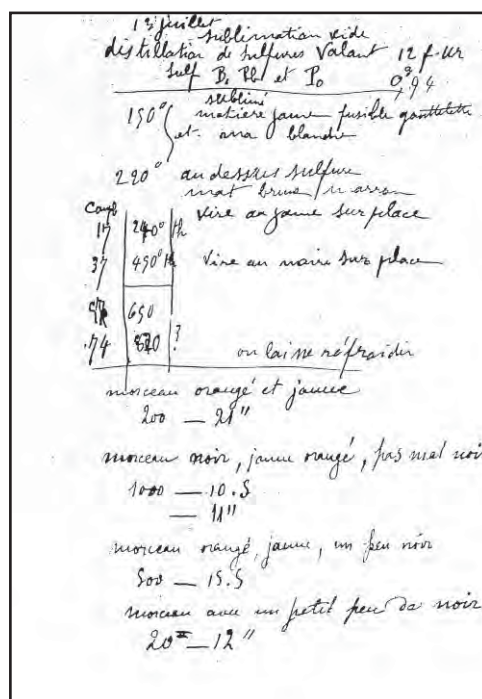 13 juillet
sublimation vide
distillation de sulfures Valant 12 f. Ur
sulf Bi Pb et Po 0g,94
sublimé
150° matière jaune fusible gouttelette
et blanche
220° au dessus sulfure
mat brune / marron
Coupl
17 240° th vire au jaune sur place
37 450° th vire au noire sur place
650
.74 820 ? on laisse réfroidir
morceau orangé et jaune
200 — 21"
morceau noir, jaune orangé, pas mal noir
1000 — 10.5
— 11"
morceau orangé, jaune, un peu noir
500 — 15.5
morceau avec un petit peu de noir
20 — 12"